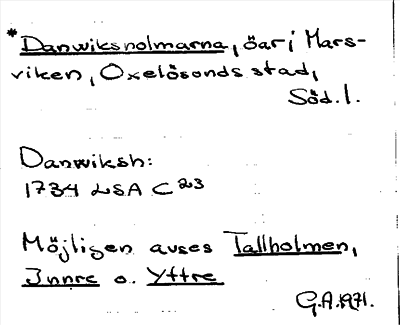 *Danwiksholmarna, öar i Mars-
viken, Oxelösunds stad,
Söd. l.
Danwiksh:
1734 LSA C 23
Möjligen avses Tallholmen,
Innre o. Yttre
G.A. 1971.